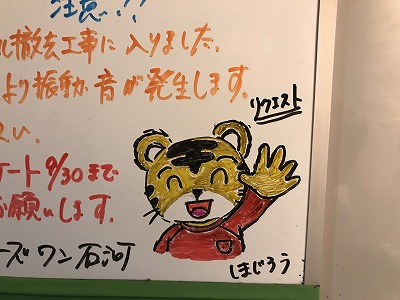 注意!!
ル撤去工事に入りました。
より振動・音が発生します。
さい。
ケート9/30まで
お願いします。
ーズワン石河
リクエスト
しまじろう